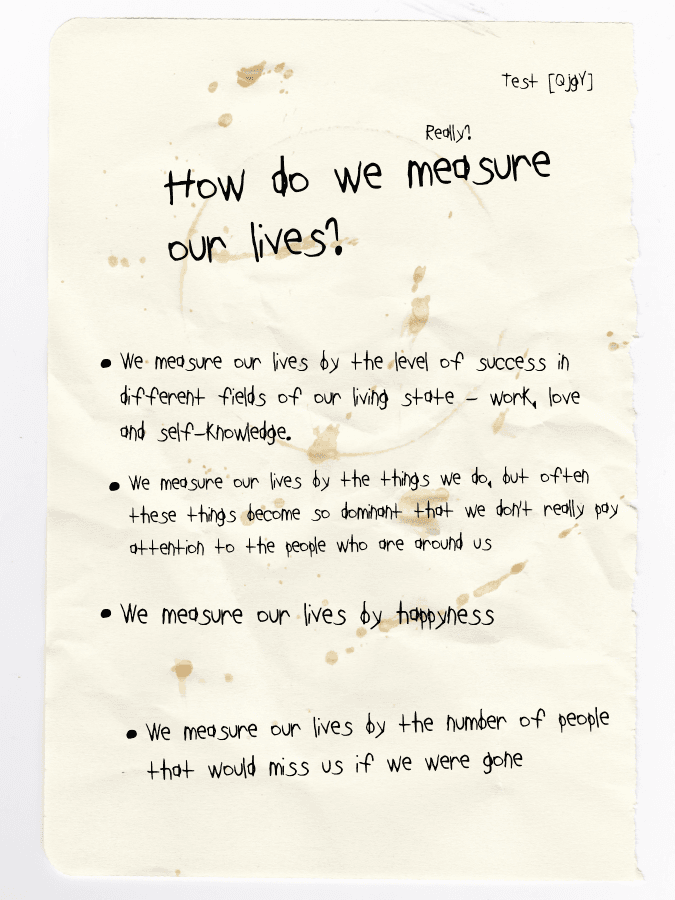 Test [QjgY]
Really?
How do we measure
our lives?
• We measure our lives by the level of success in
different fields of our living state – work, love
and self-knowledge.
• We measure our lives by the things we do, but often
these things become so dominant that we don't really pay
attention to the people who are around us
• We measure our lives by happyness
• We measure our lives by the number of people
that would miss us if we were gone